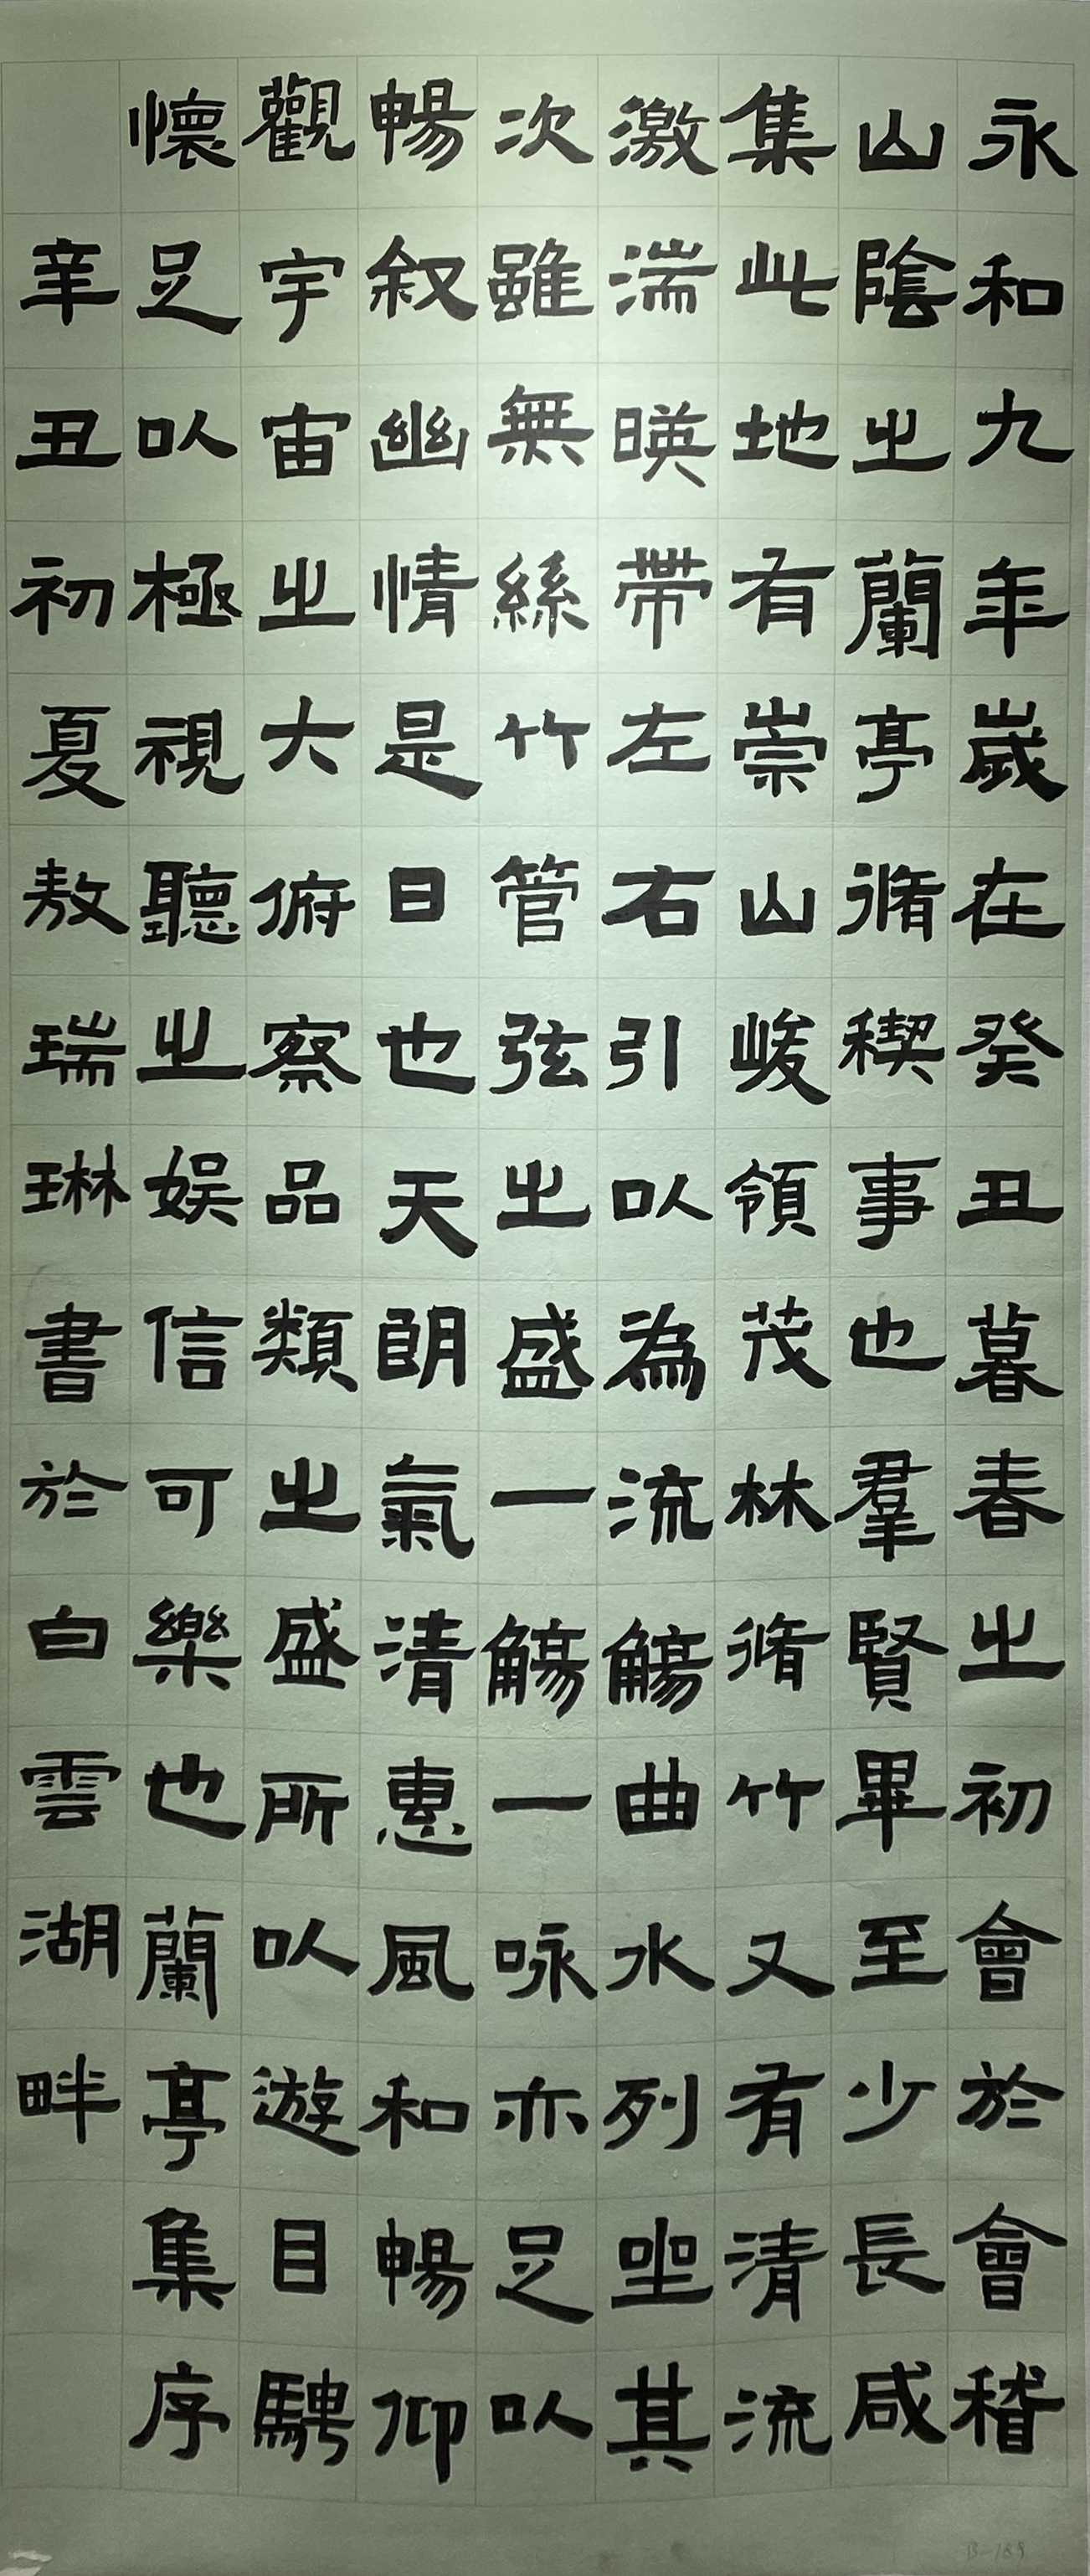 永和九年歲在癸丑暮春之初會於會稽
山陰之蘭亭脩稧事也羣賢畢至少長咸
集此地有崇山峻領茂林脩竹又有清流
激湍暎帶左右引以為流觴曲水列坐其
次雖無絲竹管弦之盛一觴一咏亦足以
暢叙幽情是日也天朗氣清惠風和暢仰
觀宇宙之大俯察品類之盛所以遊目騁
懷足以極視聽之娱信可樂也蘭亭集序
辛丑初夏敖瑞琳書於白雲湖畔
B-188